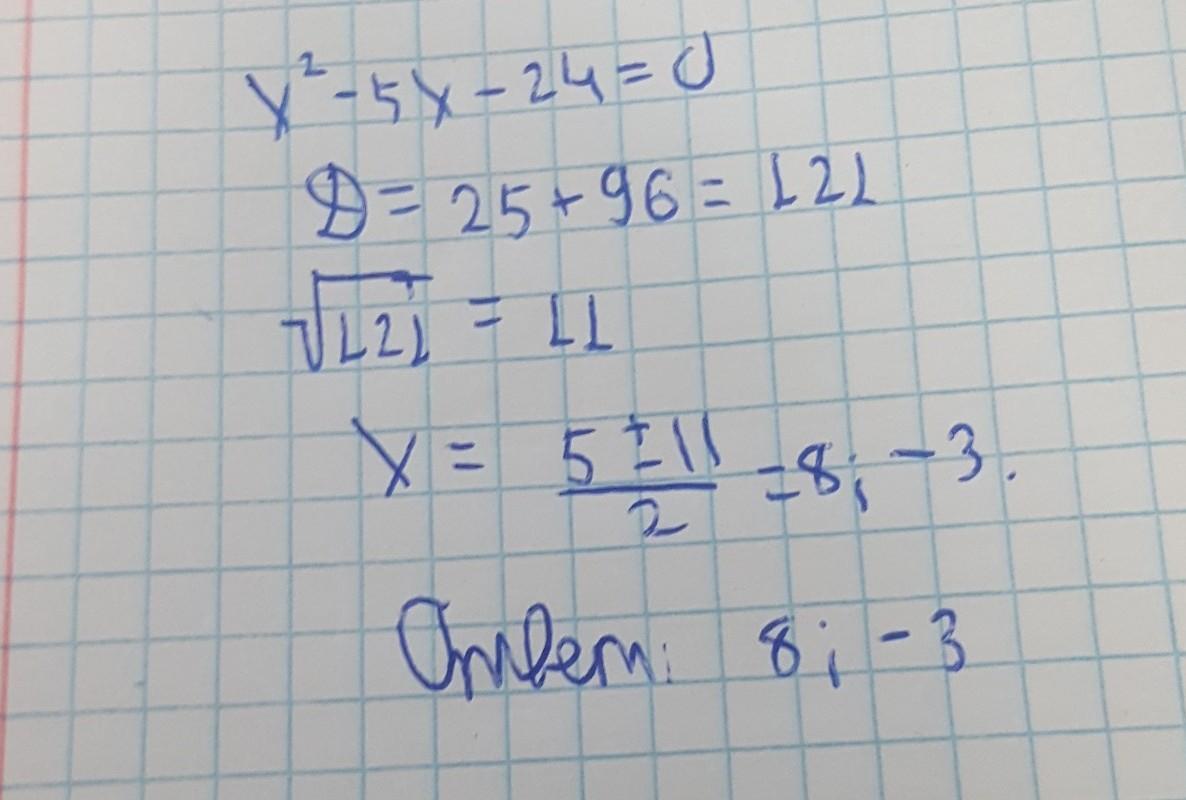 x² - 5x - 24 = 0
D = 25 + 96 = 121
√121 = 11
x = (5 ± 11)/2 = 8; -3.
Ответ: 8; -3